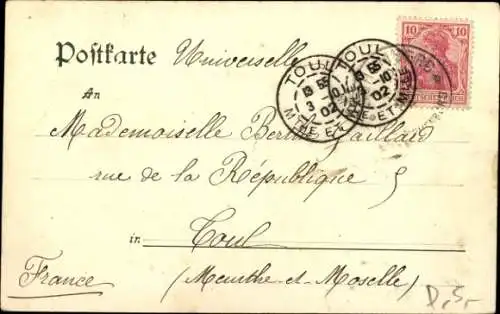 10 10
Postkarte Universelle
TOUL TOUL
3 -10
02 02
MTHE-ET-MLLE
An
Mademoiselle Berthe Gaillard
rue de la République 5
in Toul
France (Meurthe-et-Moselle)
D,5,-